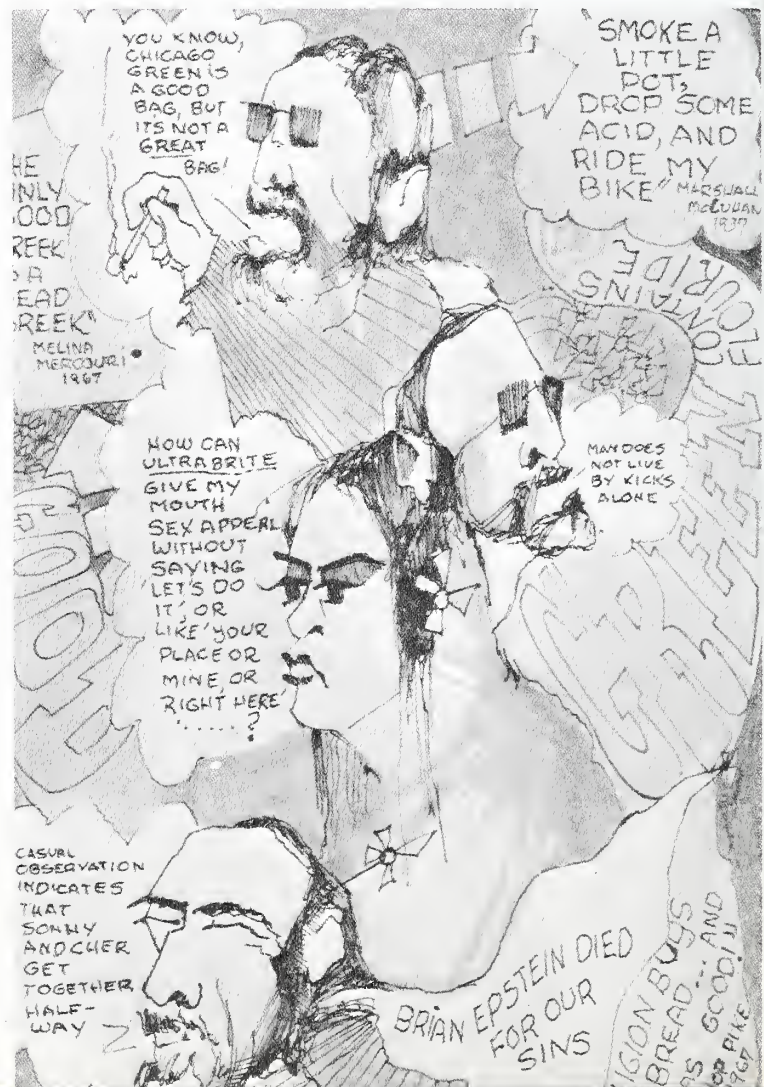 YOU KNOW,
CHICAGO
GREEN IS
A GOOD
BAG, BUT
ITS NOT A
GREAT
BAG!
"SMOKE A
LITTLE
POT,
DROP SOME
ACID, AND
RIDE MY
BIKE" MARSHALL
McLUHAN
1937
HE
NLY
OOD
REEK
A
EAD
REEK"
MELINA
MERCOURI
1967
CONTAINS
FLOURIDE
HOW CAN
ULTRABRITE
GIVE MY
MOUTH
SEX APPEAL
WITHOUT
SAYING
'LET'S DO
IT', OR
LIKE 'YOUR
PLACE OR
MINE, OR
RIGHT HERE'
'.....?
MAN DOES
NOT LIVE
BY KICKS
ALONE
GREEN
CASUAL
OBSERVATION
INDICATES
THAT
SONNY
AND CHER
GET
TOGETHER
HALF-
WAY
BRIAN EPSTEIN DIED
FOR OUR
SINS
IGION BUYS
BREAD... AND
S GOOD!!!
OP PIKE
967